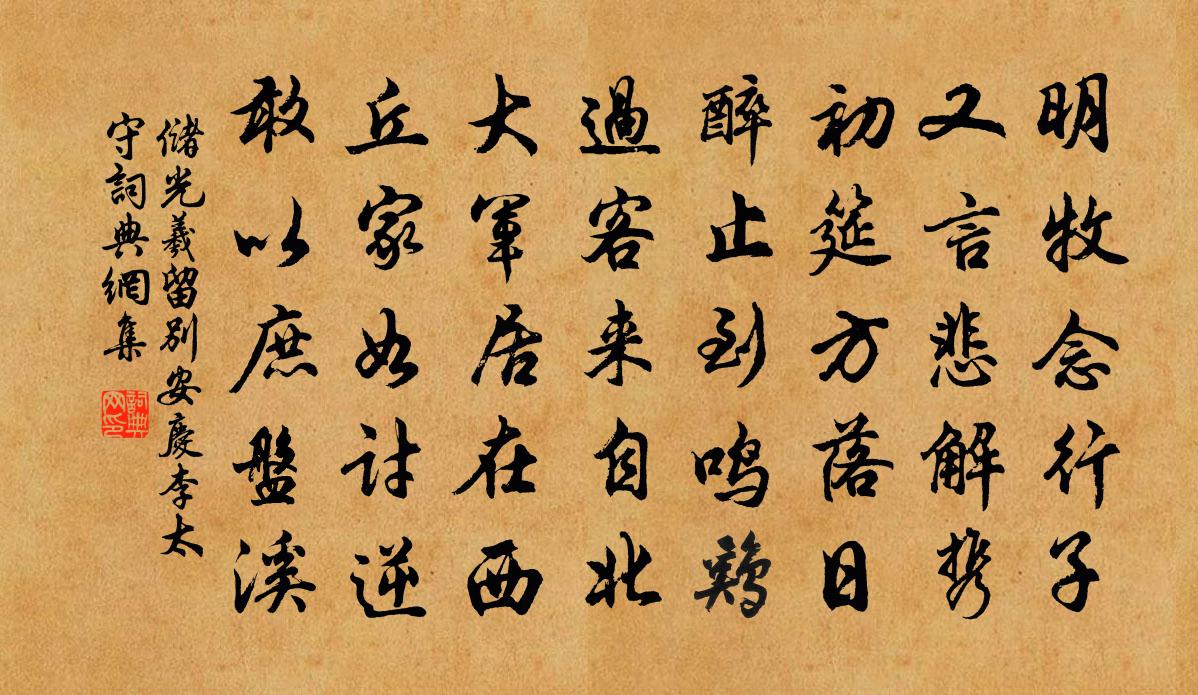 明牧念行子
又言悲解携
初筵方落日
醉止到鸣鷄
過客来自北
大軍居在西
丘家如討逆
敢以庶盤溪
儲光羲留別安慶李太
守詞典網集
詞典
网印